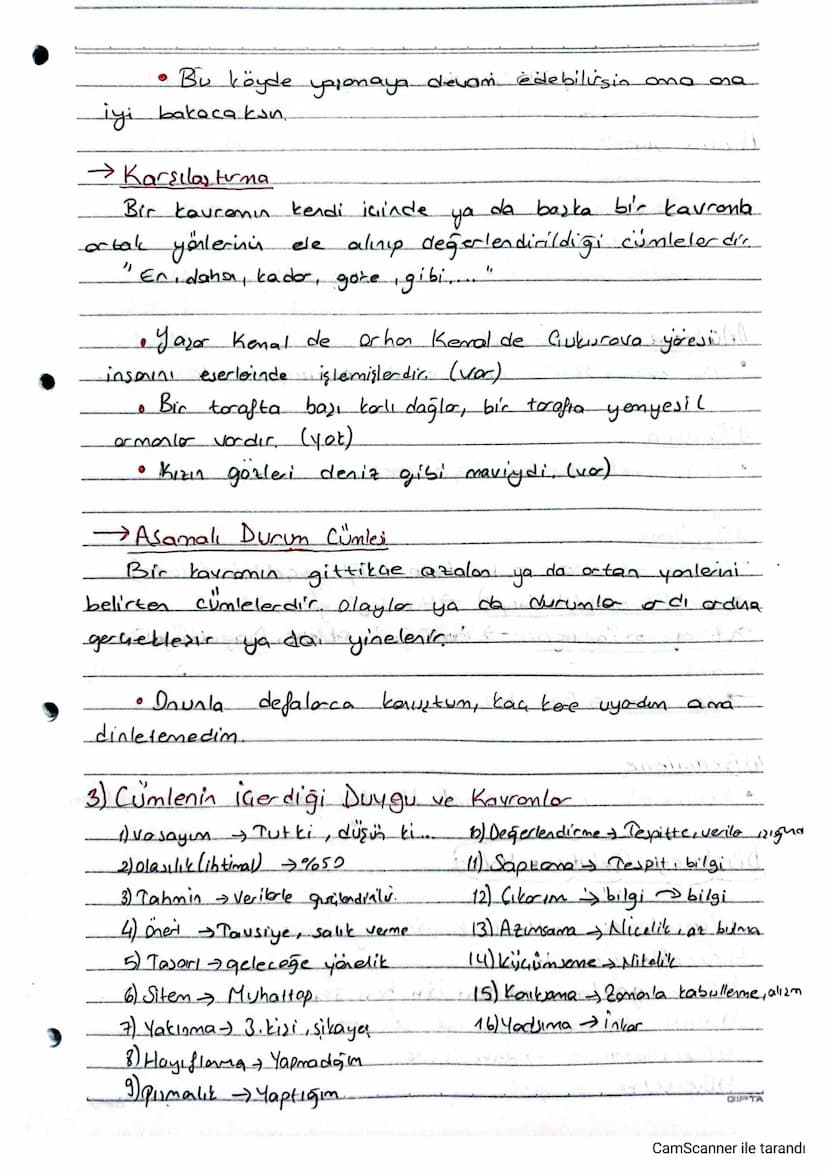 • Bu köyde yaşamaya devam edebilirsin ama ona
iyi bakacaksın.
→ Karşılaştırma
Bir kavramın kendi içinde ya da başka bir kavramla
ortak yönlerinin ele alınıp değerlendirildiği cümlelerdir.
"En, daha, kadar, göre, gibi,..."
• Yaşar Kemal de Orhan Kemal de Çukurova yöresi
insanını eserlerinde işlemişlerdir. (var)
• Bir tarafta başı karlı dağlar, bir tarafta yemyeşil
ormanlar vardır. (yok)
• Kızın gözleri deniz gibi maviydi. (var)
→ Aşamalı Durum Cümlesi
Bir kavramın gittikçe azalan ya da artan yönlerini
belirten cümlelerdir. Olaylar ya da durumlar ardı ardına
gerçekleşir ya da yinelenir.
• Onunla defalarca konuştum, kaç kere uyardım ama
dinletemedim.
3) Cümlenin İçerdiği Duygu ve Kavramlar
1) Varsayım → Tut ki, düşün ki...
2) Olasılık (ihtimal) → %50
3) Tahmin → Verilerle güçlendirilir.
4) Öneri → Tavsiye, salık verme
5) Tasarı → geleceğe yönelik
6) Sitem → Muhattap
7) Yakınma → 3. kişi, şikayet
8) Hayıflanma → Yapmadığım
9) Pişmanlık → Yaptığım
10) Değerlendirme → Tespitte, veriler ışığına
11) Saptama → Tespit, bilgi
12) Çıkarım → bilgi → bilgi
13) Azımsama → Nicelik, az bulma
14) Küçümseme → Nitelik
15) Kanıksama → Zamanla kabullenme, alışm
16) Yadsıma → İnkar
GIPTA
CamScanner ile tarandı